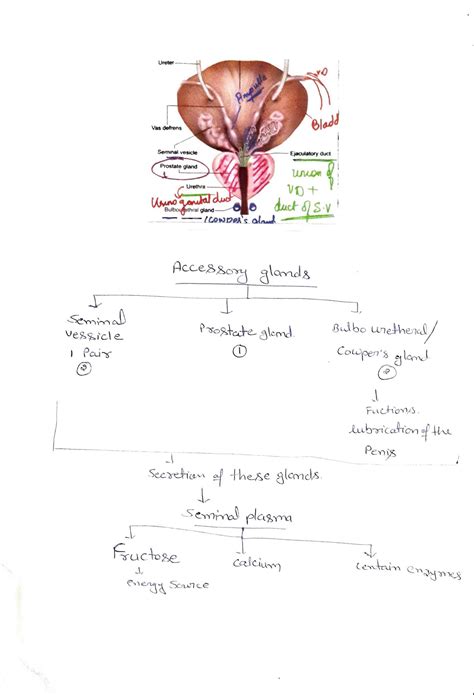 Ureter
VD
Ampulla
Vas defrens
Bladd
Seminal vesicle
Ejaculatory duct
Prostate gland
union of
VD +
duct of S.V
Urethra
Urinogenital duct
Bulbourethral gland
(COWPER's gland
Accessory glands
Seminal
vessicle
1 Pair
②
Prostate gland.
①
Bulbo uretheral/
Cowper's gland
②
Fuctions.
lubrication of the
Penis
Secretion of these glands.
Seminal plasma
Fructose
energy source
calcium
certain enzymes